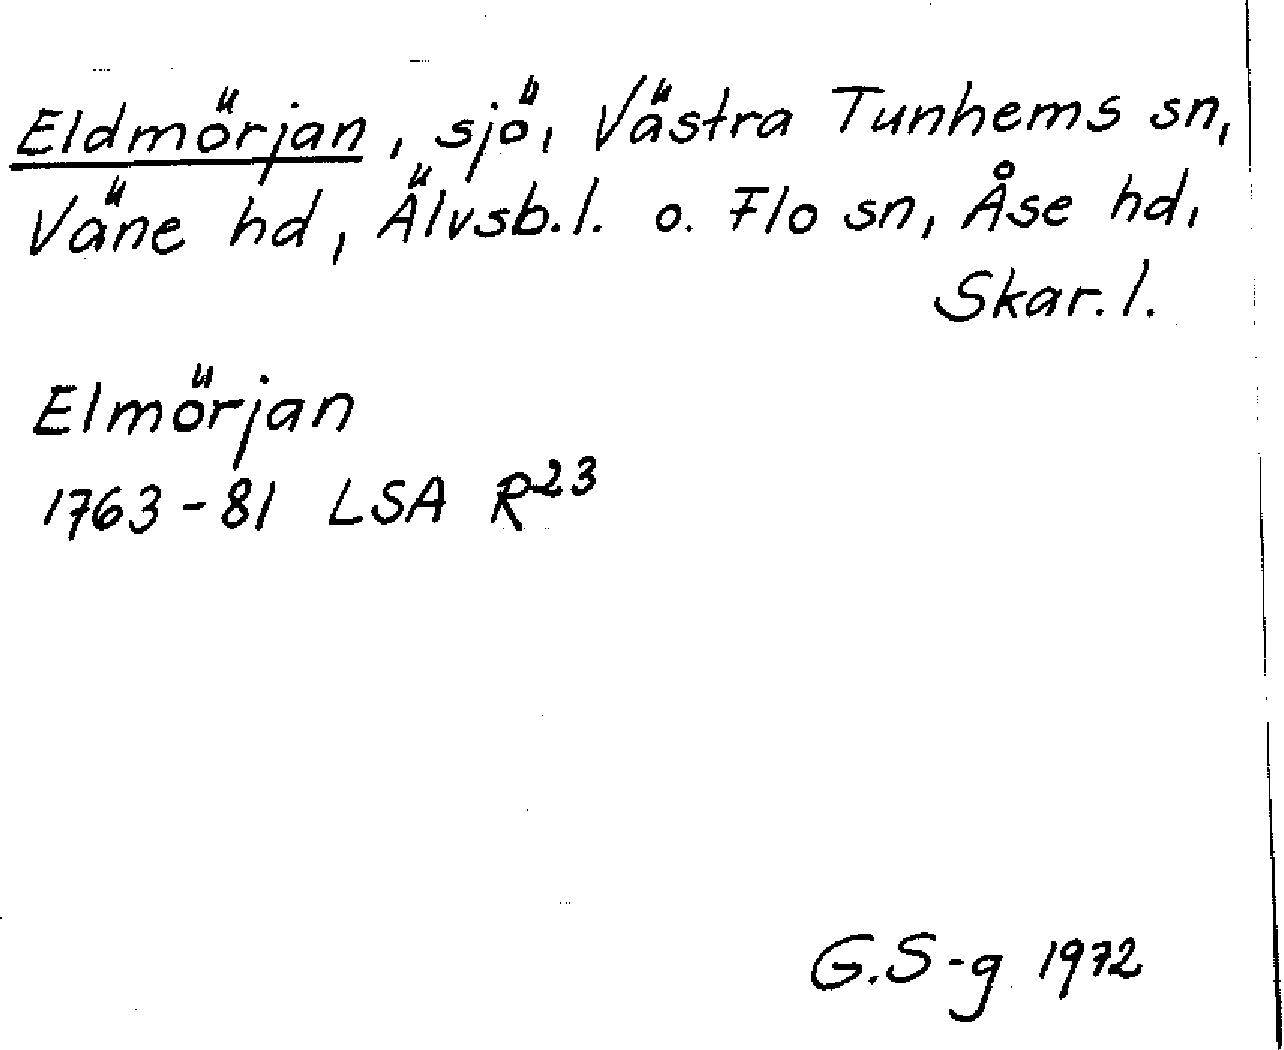 Eldmörjan, sjö, Västra Tunhems sn,
Väne hd, Älvsb.l. o. Flo sn, Åse hd,
Skar.l.
Elmörjan
1763-81 LSA R²³
G.S-g 1972